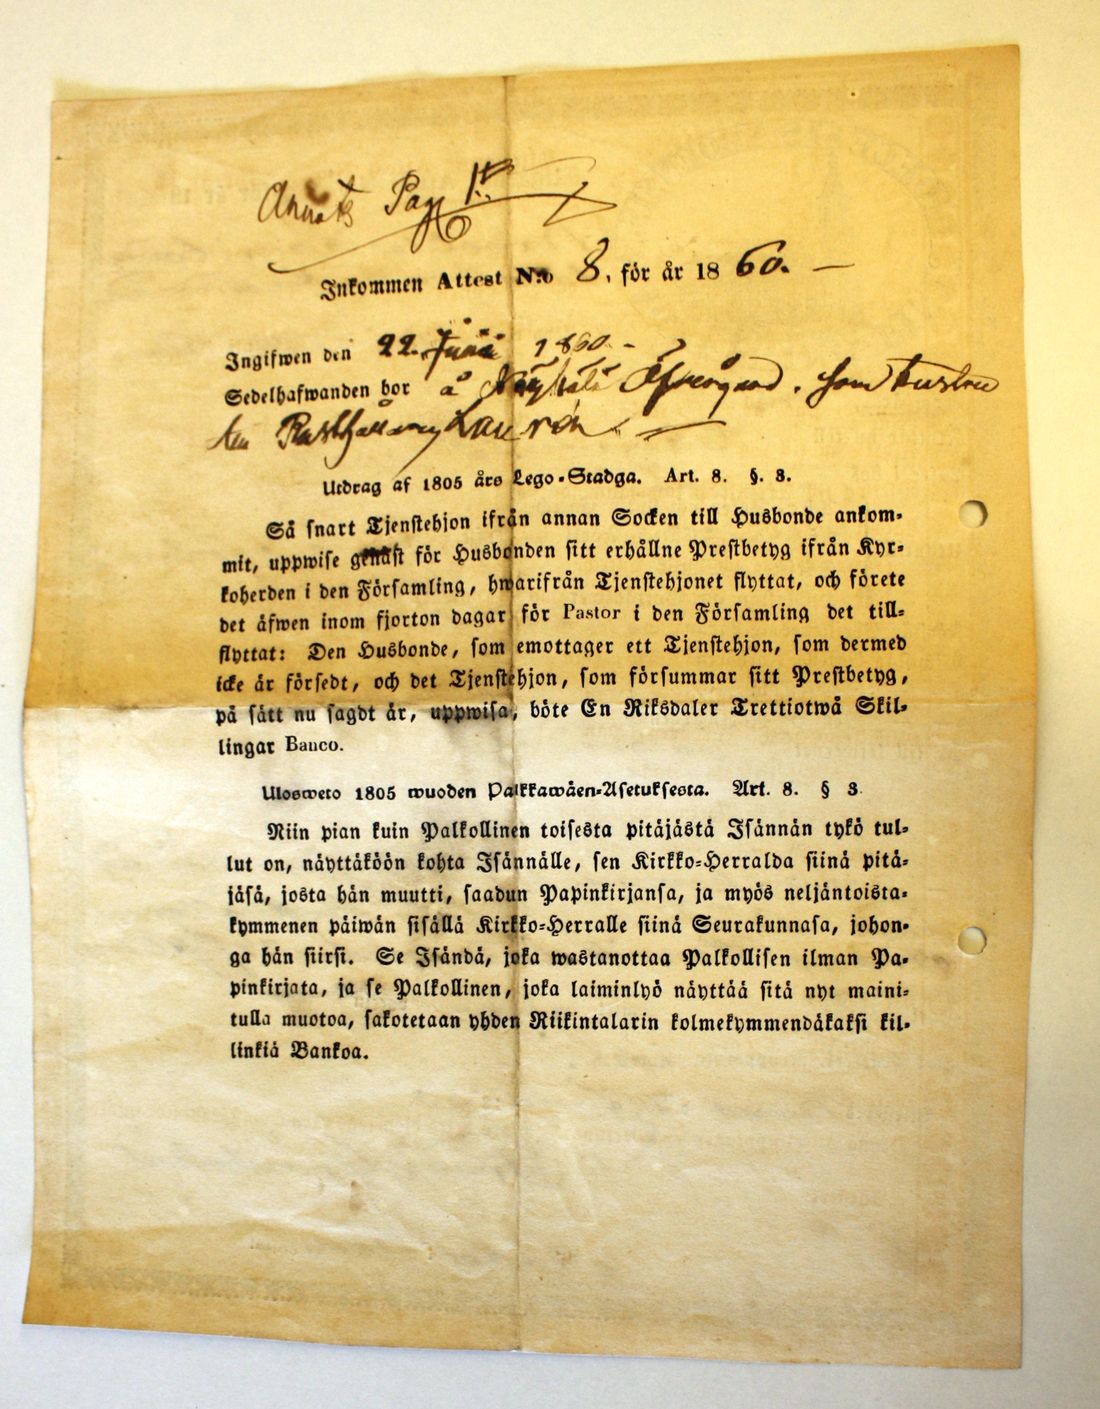 Pag 1
Inkommen Attest N:o 8, för år 1860. —
Ingifwen den 22. Junii 1860. -
Sedelhafwanden bor å Öfvergård. som hustru
Lauren
Utdrag af 1805 års Lego-Stadga. Art. 8. §. 3.
Så snart Tjenstehjon ifrån annan Socken till Husbonde ankom-
mit, uppwise genast för Husbonden sitt erhållne Prestbetyg ifrån Kyr-
koherden i den Församling, hwarifrån Tjenstehjonet flyttat, och förete
det äfwen inom fjorton dagar för Pastor i den Församling det till-
flyttat: Den Husbonde, som emottager ett Tjenstehjon, som dermed
icke är försedt, och det Tjenstehjon, som försummar sitt Prestbetyg,
på sätt nu sagdt är, uppwisa, böte En Riksdaler Trettiotwå Skil-
lingar Banco.
Ulosweto 1805 wuoden Palkkawäen-Asetuksesta. Art. 8. § 3.
Niin pian kuin Palkollinen toisesta pitäjästä Isännän tykö tul-
lut on, näyttäköön kohta Isännälle, sen Kirkko-Herralda siinä pitä-
jäsä, josta hän muutti, saadun Papinkirjansa, ja myös neljäntoista-
kymmenen päiwän sisällä Kirkko-Herralle siinä Seurakunnasa, johon-
ga hän siirsi. Se Isändä, joka wastanottaa Palkollisen ilman Pa-
pinkirjata, ja se Palkollinen, joka laiminlyö näyttää sitä nyt maini-
tulla muotoa, sakotetaan yhden Riikintalarin kolmekymmendäkaksi kil-
linkiä Bankoa.